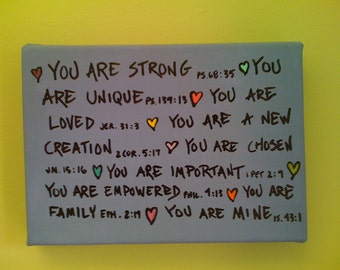 YOU ARE STRONG PS. 68:35 YOU
ARE UNIQUE PS. 139:13 YOU ARE
LOVED JER. 31:3 YOU ARE A NEW
CREATION 2 COR. 5:17 YOU ARE CHOSEN
JN. 15:16 YOU ARE IMPORTANT 1 PET 2:9
YOU ARE EMPOWERED PHIL. 4:13 YOU ARE
FAMILY EPH. 2:19 YOU ARE MINE IS. 43:1